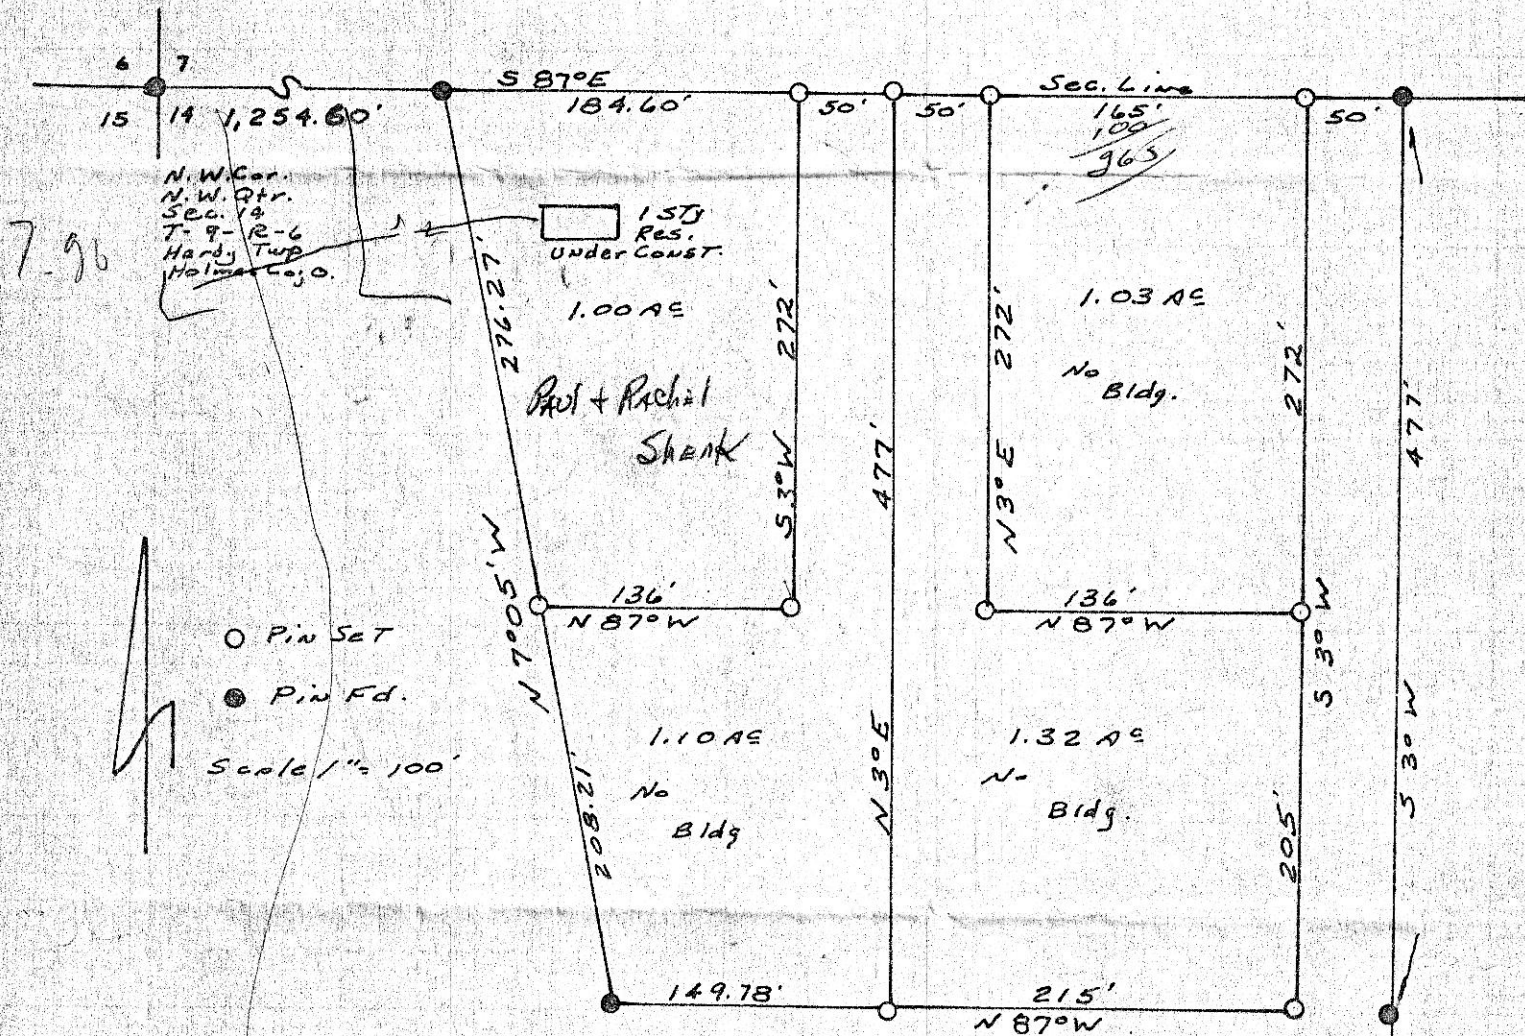 6 7
15 14
1,254.60'
S 87°E
184.60'
50'
50'
Sec. Line
165'
100
965
50'
N.W. Cor.
N.W. Qtr.
Sec. 14
T-9-R-6
Hardy Twp
Holmes Co., O.
7.96
1 STy
Res.
Under Const.
1.00 Ac
276.27'
272'
S 3° W
Paul + Rachel
Shenk
477'
N 3° E
N 3° E 272'
1.03 Ac
No
Bldg.
272'
S 3° W
477'
S 3° W
136'
N 87° W
136'
N 87° W
N 7°05' W
O Pin Set
● Pin Fd.
Scale 1" = 100'
1.10 Ac
No
Bldg
208.21'
1.32 Ac
N-
Bldg.
205'
149.78'
215'
N 87° W